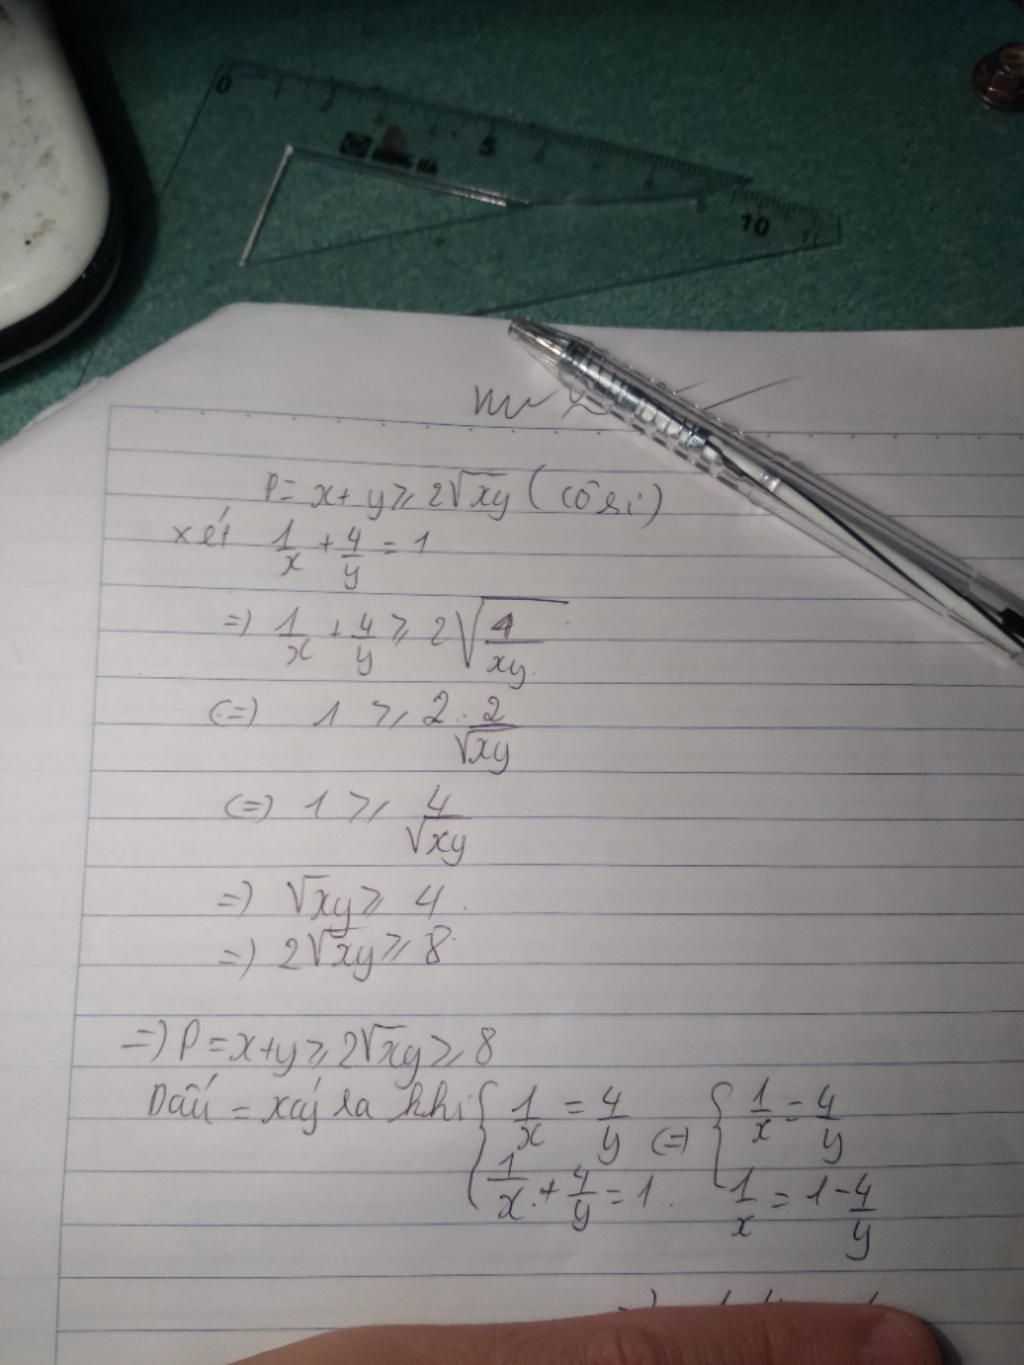 0 5 10
P = x + y ≥ 2√xy (cô si)
xét 1/x + 4/y = 1
=) 1/x + 4/y ≥ 2√(4/xy)
(=) 1 ≥ 2 . 2/√xy
(=) 1 ≥ 4/√xy
=) √xy ≥ 4
=) 2√xy ≥ 8
=) P = x + y ≥ 2√xy ≥ 8
Dấu = xảy ra khi { 1/x = 4/y (=) { 1/x = 4/y
1/x + 4/y = 1 1/x = 1 - 4/y